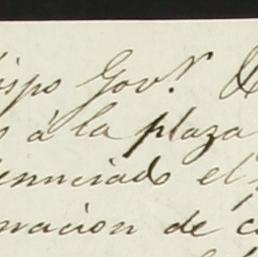 ispo Gov.r
à la plaza
enunciado el
nacion de c